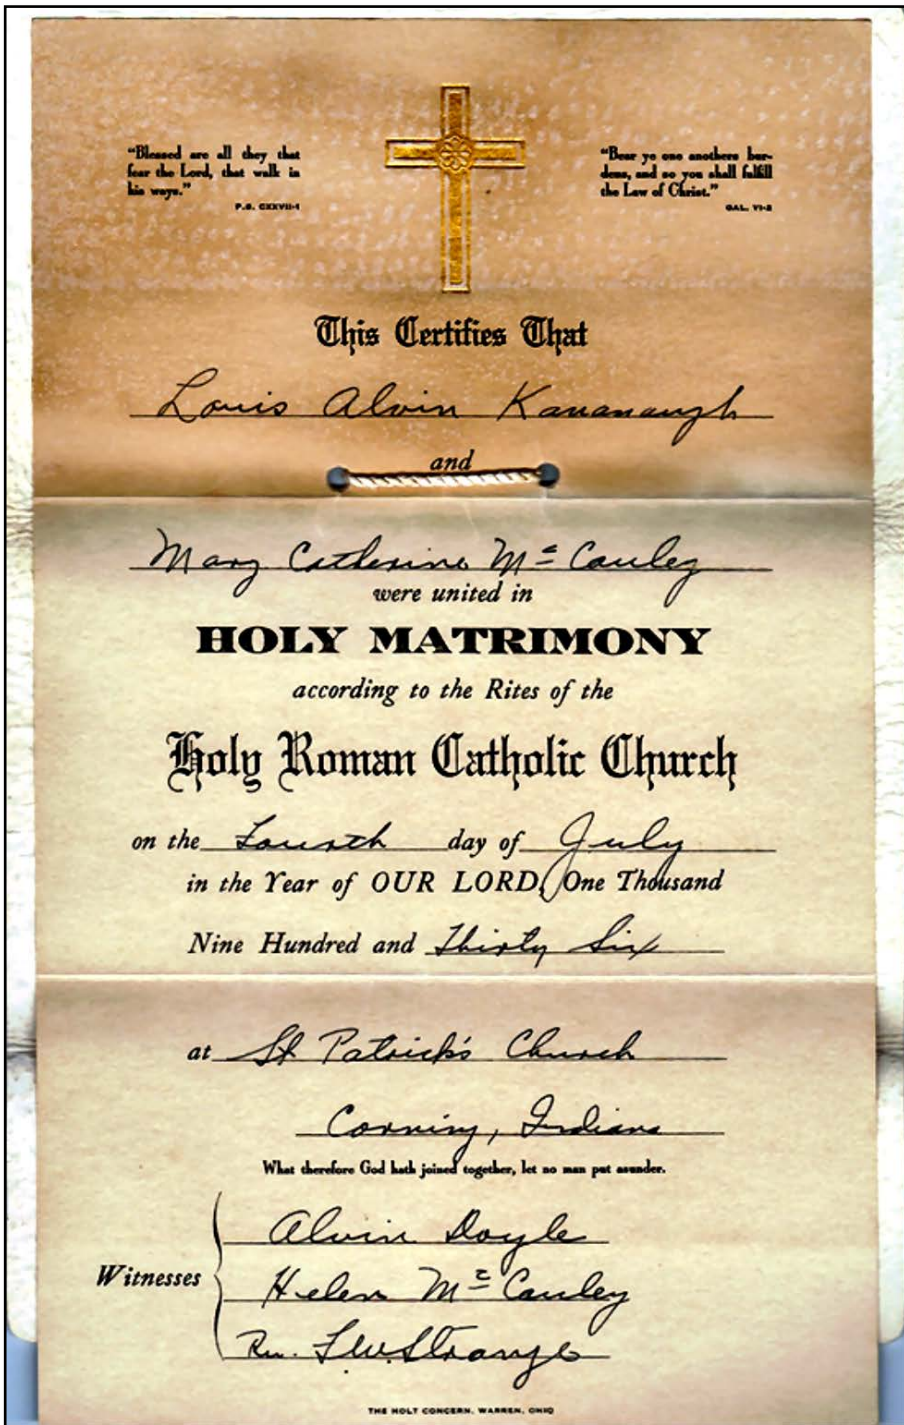 "Blessed are all they that
fear the Lord, that walk in
his ways."
P.S. CXXVII-1
"Bear ye one anothers bur-
dens, and so you shall fulfill
the Law of Christ."
GAL. VI-2
This Certifies That
Louis Alvin Kavanaugh
and
Mary Catherine Mc Cauley
were united in
HOLY MATRIMONY
according to the Rites of the
Holy Roman Catholic Church
on the Fourth day of July
in the Year of OUR LORD, One Thousand
Nine Hundred and Thirty Six
at St Patrick's Church
Corning, Indiana
What therefore God hath joined together, let no man put asunder.
Witnesses
Alvin Doyle
Helen Mc Cauley
Rev. F.W. Strange
THE HOLT CONCERN, WARREN, OHIO